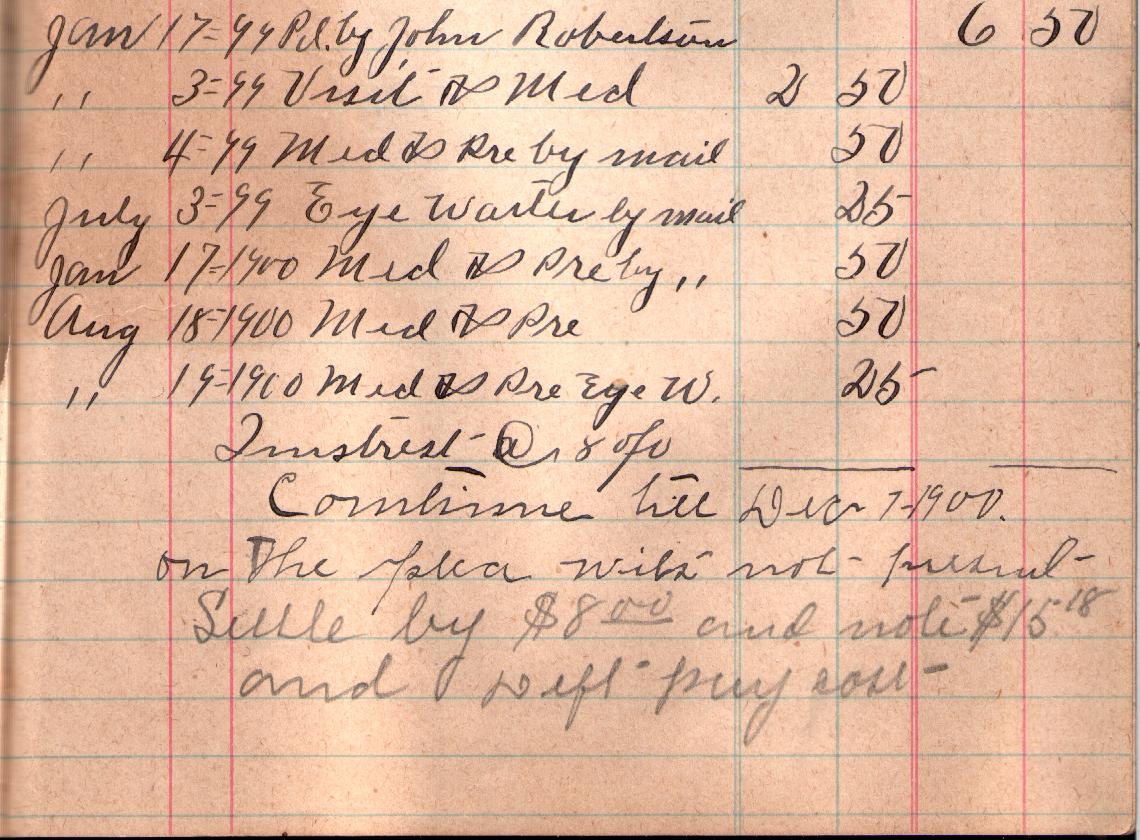 Jan 17=99 Pd. by John Robertson 6 50
" 3=99 Visit & Med 2 50
" 4=99 Med & Pre by mail 50
July 3=99 Eye Water by mail 25
Jan 17=1900 Med & Pre by " 50
Aug 18=1900 Med & Pre 50
" 19=1900 Med & Pre Eye W. 25
Intrest @ 8 o/o
Continue till Dec 7-1900.
on The plea wits not present
Settle by $8.00 and note $15.18
and Deft pay cost